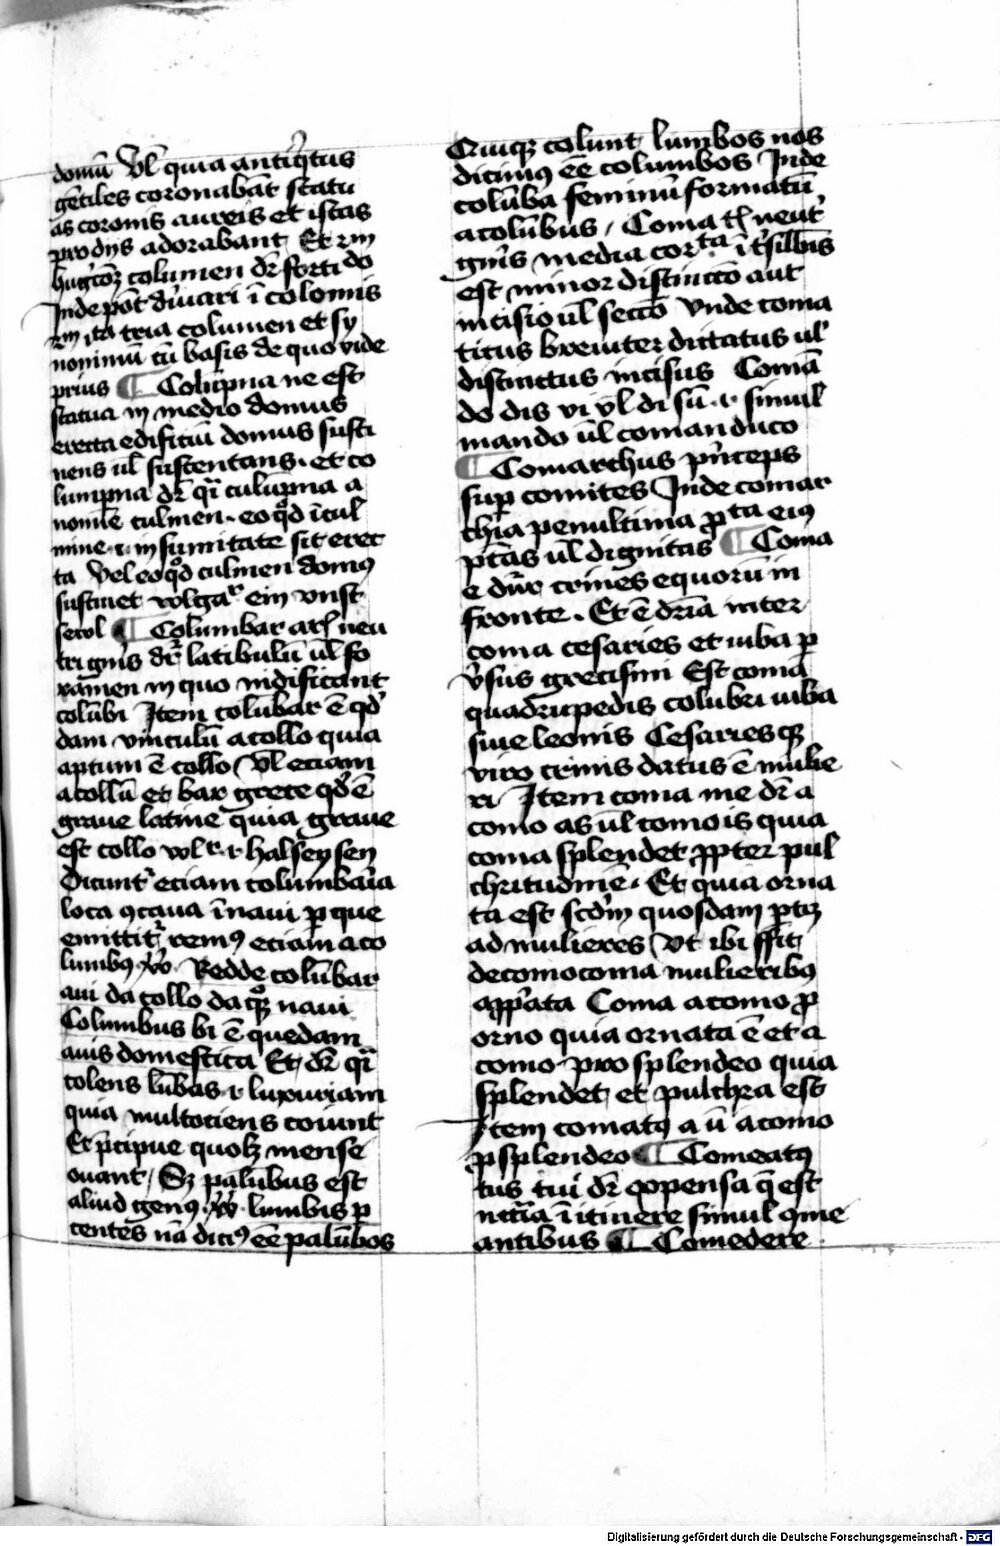 domū Vl̄ quia antiq̇tus
gētiles coronabāt statu
as coronis aureis et istas
pro dijs adorabant Et scm̄
hugꝯꝫ columen dr̄ forti do
Inde pōt dīuari ī colomis
scm̄ ita tria columen et sy
nonimū cū basis de quo vide
prius ¶ Colūpna ne est
statua in medio domus
erecta edifitiū domus susti
nens ul̄ sustentans · et co
lumpna dr̄ q̄i culūpna a
nomīe culmen · eo qd̄ ī cul
mine · i · in sumitate sit erec
ta Vel eo qd̄ culmen domꝰ
sustinet volgar̄ ein
¶ Columbar ar̄ neu
tri gn̄is dr̄ latibulū ul̄ fo
ramen in quo nidificant
colūbi Item colūbar ē qd̄
dam vinculū a collo quia
aptum ē collo Vl̄ eciam
a collū et bar grece qd̄ ē
graue latine quia graue
est collo vol r · i · halseysen
Dicunt᷑ eciam columbaria
loca ꝯcaua ī naui ꝑ que
emittit᷑ remꝰ eciam a co
lumbꝰ Redde colūbar
aui da collo daqꝫ naui
Columbus bi ē quedam
auis domestica Et dr̄ q̄i
colens lūbas · i · luxuriam
quia multociens coiunt
Et p̄cipue quolꝫ mense
ouant / Sꝫ palūbus est
aliud genꝰ · lumbis ꝑ
centes nā dicīꝰ eē palūbos
Cruiqꝫ colunt lumbos nos
dicimꝰ eē columbos Inde
colūba feminū formatū
a colūbus / Coma tꝭ neut᷑
gn̄is media corta ī t᷑silbīs
est minor distinctō aut
incisio ul̄ sectō Vnde coma
ticus breuiter dictatus ul̄
distinctus incisus Comā
do dis vi vl̄ di sū · i · simul
mando ul̄ comanduco
¶ Comarchus pn̄ceps
suꝑ comites Inde comar
chia penultima ꝓta eiꝰ
ptās ul̄ dignitas ¶ Coma
e dn̄r crines equorū in
fronte · Et ē dr̄ia inter
coma cesaries et iuba ꝑ
v̄sus grecismi Est coma
quadrupedis colubri iuba
siue leonis Cesariesqꝫ
viro crinis datus ē mulie
ri Item coma me dr̄ a
como as ul̄ comois quia
coma splendet ꝓpter pul
chritudinē · Et quia orna
ta est scd̄m quosdam ꝑtꝫ
ad mulieres Vt ibi ffit
decomocoma mulieribꝰ
apꝓata Coma a como ꝓ
orno quia ornata ē et a
como pro splendeo quia
splendet et pulchra est
Item comatꝰ a ū a como
ꝓ splendeo ¶ Comeatꝰ
tus tui dr̄ ꝯpensa q̄ est
nccīa ī itinere simul ꝯme
antibus ¶ Comedere